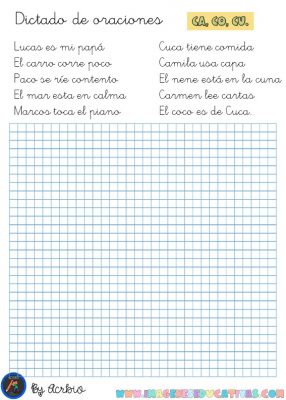 Dictado de oraciones
CA, CO, CU.
Lucas es mi papá
El carro corre poco
Paco se ríe contento
El mar esta en calma
Marcos toca el piano
Cuca tiene comida
Camila usa capa
El nene está en la cuna
Carmen lee cartas
El coco es de Cuca.
By Acrbio
WWW.IMAGENESEDUCATIVAS.COM